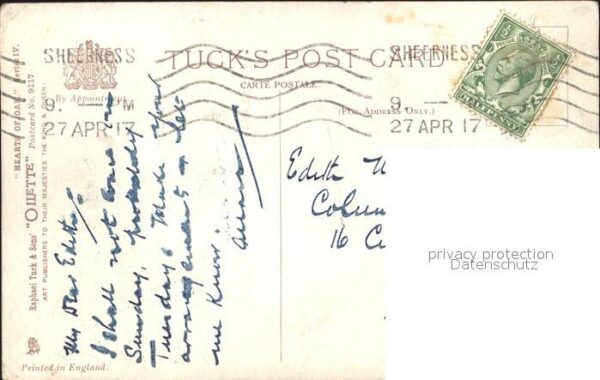 SHEERNESS
9. — M
27 APR 17
TUCK'S POST CARD
CARTE POSTALE.
By Appointment
(FOR ADDRESS ONLY.)
SHEERNESS
9. —
27 APR 17
HALFPENNY
Raphael Tuck & Sons' "OILETTE" "HEARTS OF OAK" Series IV.
Postcard No. 9117
ART PUBLISHERS TO THEIR MAJESTIES THE KING & QUEEN.
My Dear Edith.
I shall not come on
Sunday, probably
Tuesday. Make your
arrangements & let
me know.
Edith
Colum
16 C
privacy protection
Datenschutz
Printed in England.